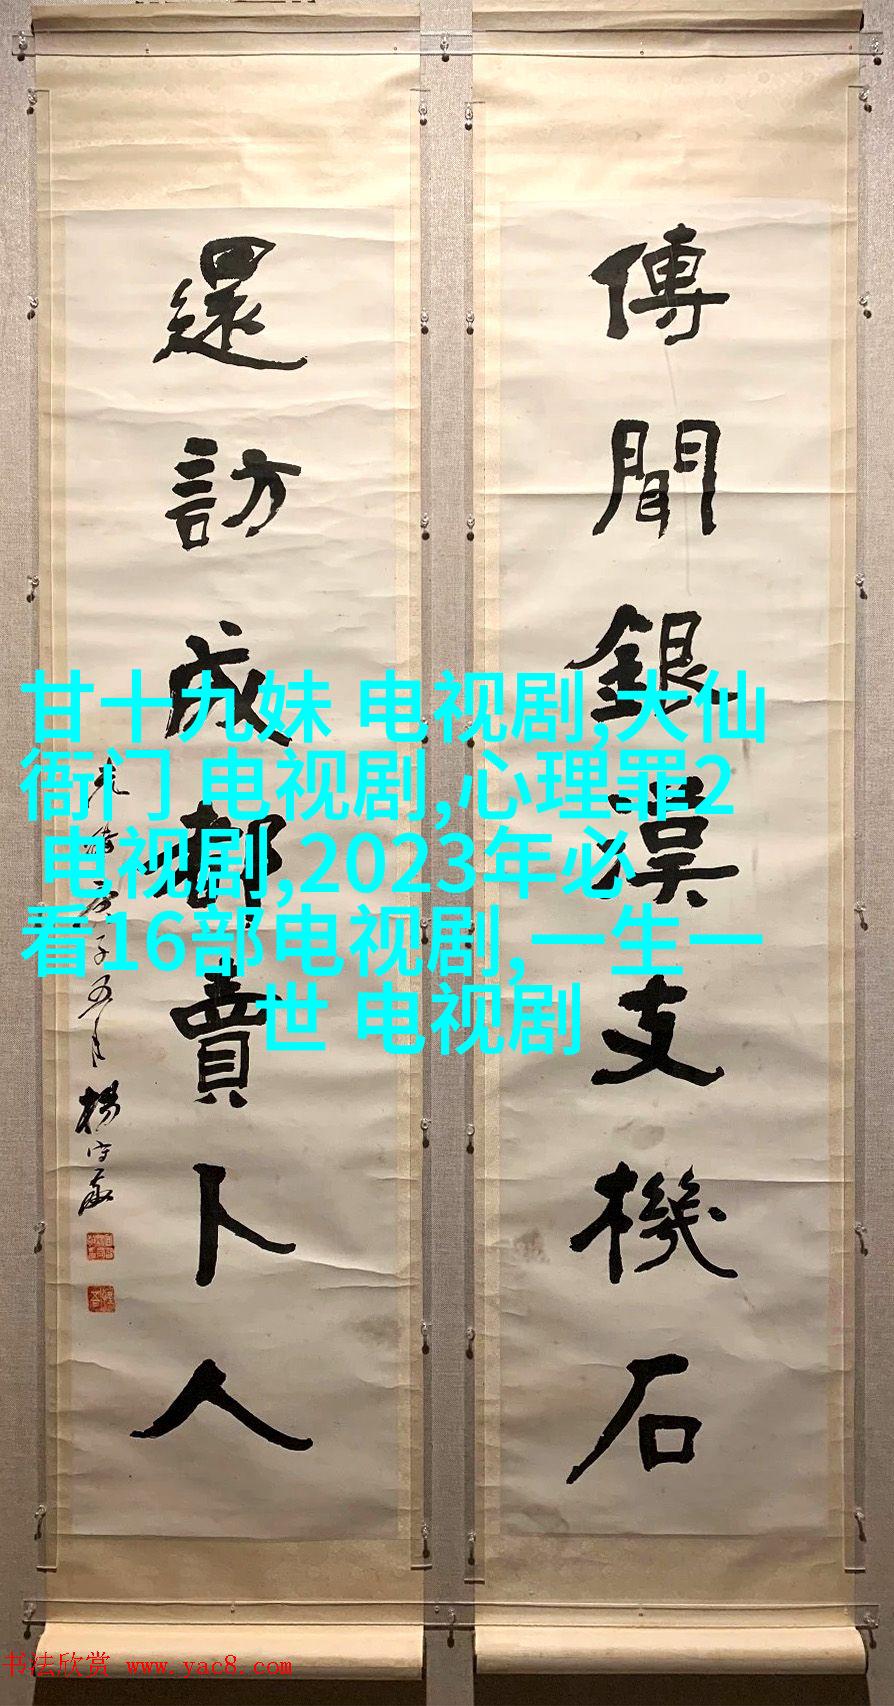 傳聞銀漢支機石
還訪成都賣卜人
楊守敬
甘十九妹 电视剧,大仙
衙门 电视剧,心理罪2
电视剧,2023年必
看16部电视剧,一生一
世 电视剧
书法欣赏 www.yac8.com